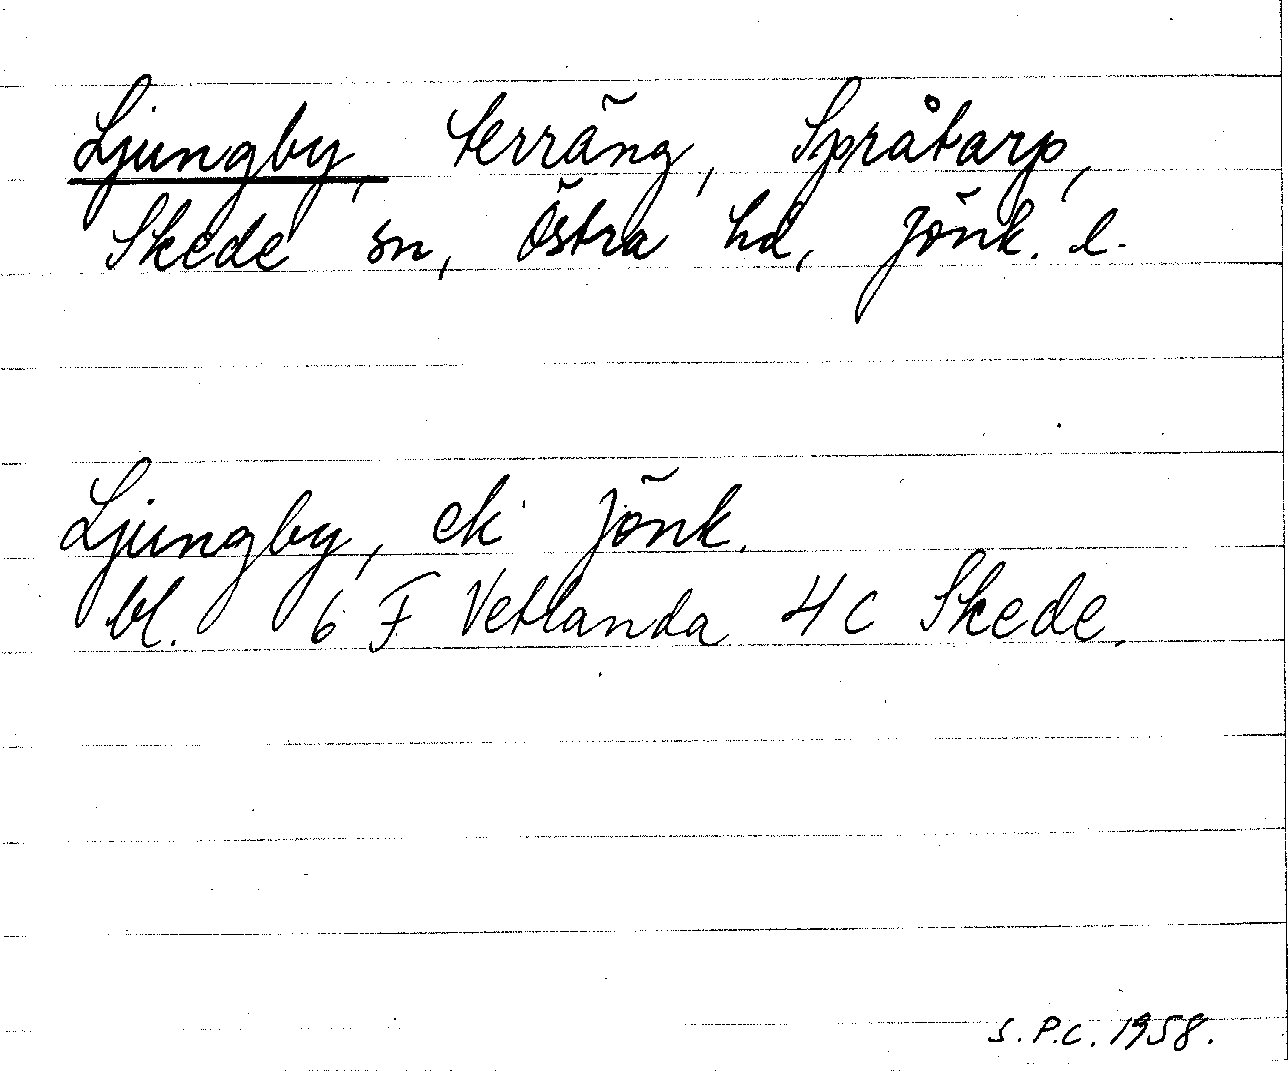 Ljungby, terräng, Språtarp,
Skede sn, Östra hd, Jönk. l.
Ljungby, ek Jönk.
bl. 6 F Vetlanda 4 C Skede.
S.P.C. 1958.